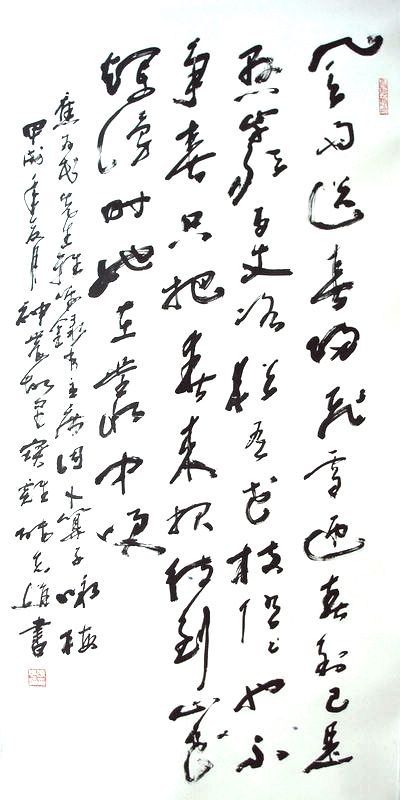 风雨送春归飞雪迎春到已是
悬崖百丈冰犹有花枝俏〻也不
争春只把春来报待到山花
烂漫时她在丛中咲
先生雅嘱录毛主席词卜算子咏梅
甲戌年 月神農故里寶雞 書